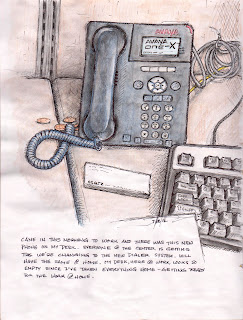 AVAYA
AVAYA
one-X
CAME IN THIS MORNING TO WORK AND THERE WAS THIS NEW
PHONE ON MY DESK. EVERYONE @ THE CENTER IS GETTING
THIS WE'RE CHANGING TO THE NEW DIALER SYSTEM. WILL
HAVE THE SAME @ HOME. MY DESK, HERE @ WORK LOOKS SO
EMPTY SINCE I'VE TAKEN EVERYTHING HOME - GETTING READY
FOR THE WORK @ HOME.